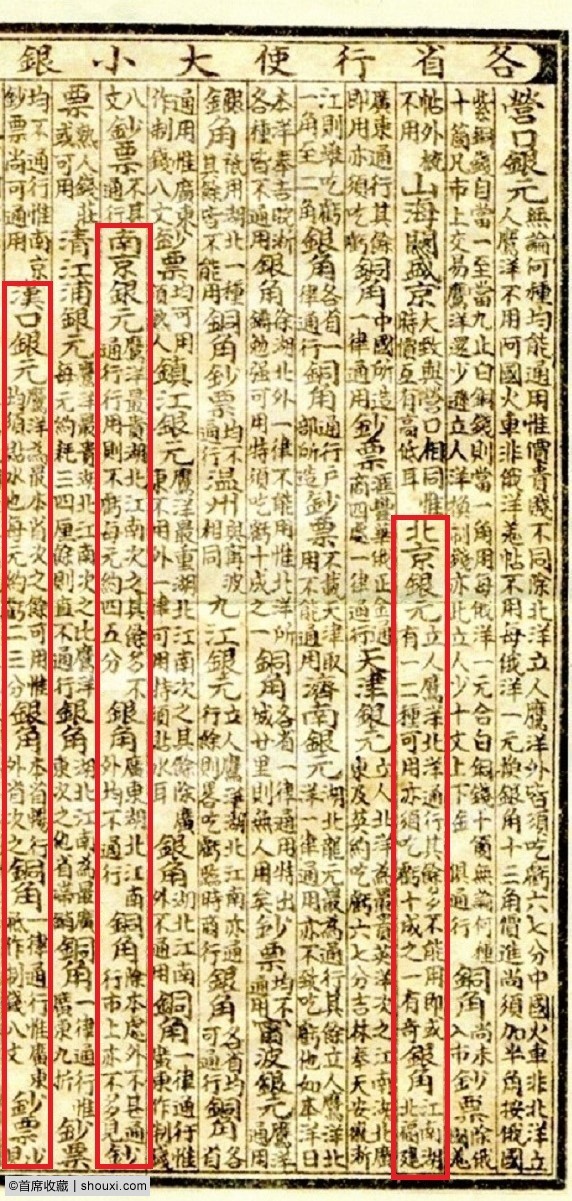 各省行使大小銀
營口銀元 無論何種均能通用惟價貴賤不同除北洋立人鷹洋外皆須吃虧六七分中國火車非北洋立人鷹洋不用阿國火車非俄洋羌帖不用每俄洋一元換銀角十三角價進尚須加半角按俄國
紫銅錢自當一至當九止白銅錢則當一角用每俄洋一元合白銅錢十箇無論何種十箇凡市上交易鷹洋還少立人洋換制錢亦此立人少十文上下 俱通行 銅角 尚未入市 鈔票 除俄國羌
帖外概不用 山海關盛京 大致與營口相同惟時價互有高低耳 北京銀元 立人鷹洋北洋通行其餘多不能用即或有一二種可用亦須吃虧十成之一有奇 銀角 江南湖北福建
廣東通行其餘即用亦須吃虧 銅角 中國所造一律通用 鈔票 滙豐華俄正金通商四處一律通行 天津銀元 立人北洋為最貴英洋次之江南湖北廣東及英約吃虧六七分吉林奉天安徽浙
江則雖吃虧一角至二角 銀角 各省一律通行 銅角 通行戶部所造 鈔票 不載天津取用不能通用 濟南銀元 湖北龍元最為通行其餘立人鷹洋洋一律通用亦不致吃虧也如本洋日
本洋奉吉皖浙各種皆不通用 銀角 除湖北外一律不能用惟北洋所鑄勉强可用特須吃虧十成之一 銅角 各省一律通用特出城廿里則無人用矣 鈔票 均不通用 甯波銀元 鷹洋通用
銀角 祇用湖北一種其餘皆不能用 銅角鈔票 均不通行 温州 與甯波相同 九江銀元 立人鷹洋湖北江南亦通行餘則畧吃虧臨時商行 銀角 各省均可通行 銅角 各
通用惟廣東作制錢八文 鈔票 均可用須熟人 鎮江銀元 鷹洋最重湖北江南次之其餘除廣東不用外一律可用特須貼水耳 銀角 湖北江南外不通用 銅角 一律通行惟廣東作制錢
八文 鈔票 不甚通行 南京銀元 鷹洋最貴湖北江南次之其餘多不通行行用則不虧每元約四五分 銀角 廣東湖北江南外均不通行 銅角 除本處外不甚通行市上亦不多見 鈔
票 熟人錢莊或可用 清江浦銀元 鷹洋最貴湖北江南次之比鷹洋每元約耗三四厘餘則直不通行 銀角 湖北江南為最廣東次之他省 銅角 一律通行惟廣東九折 鈔票
均不通行惟南京鈔票尚可通用 漢口銀元 鷹洋為最本省次之餘可用惟均須貼水也每元約虧二三分 銀角 本省暢行外省次之 銅角 一律通行惟廣東祇作制錢八文 鈔票
©首席收藏 | shouxi.com